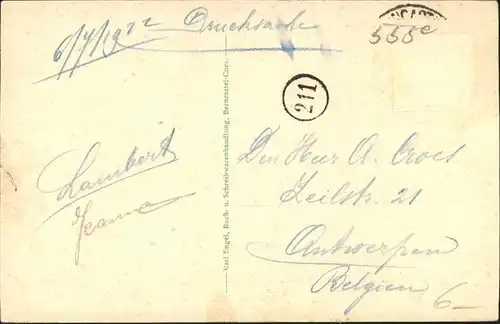 6/7/1922 Drucksache
558e
211
Lambert
Jeanne
Karl Engel, Buch- u. Schreibwarenhandlung, Berncastel-Cues.
Den Heer A. Croes
Zeilstr. 21
Antwerpen
Belgien
6-